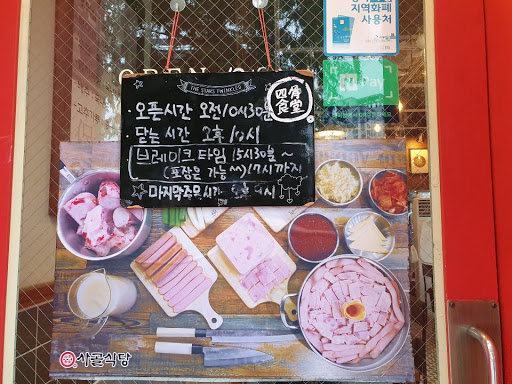 지역화폐
사용처
Pay
THE STARS TWINKLED
四骨
食堂
· 오픈시간 오전10시30분
· 닫는시간 오후10시
브레이크타임 15시30분~
(포장은 가능^^) 17시까지
☆마지막주문시간 9시
사골식당